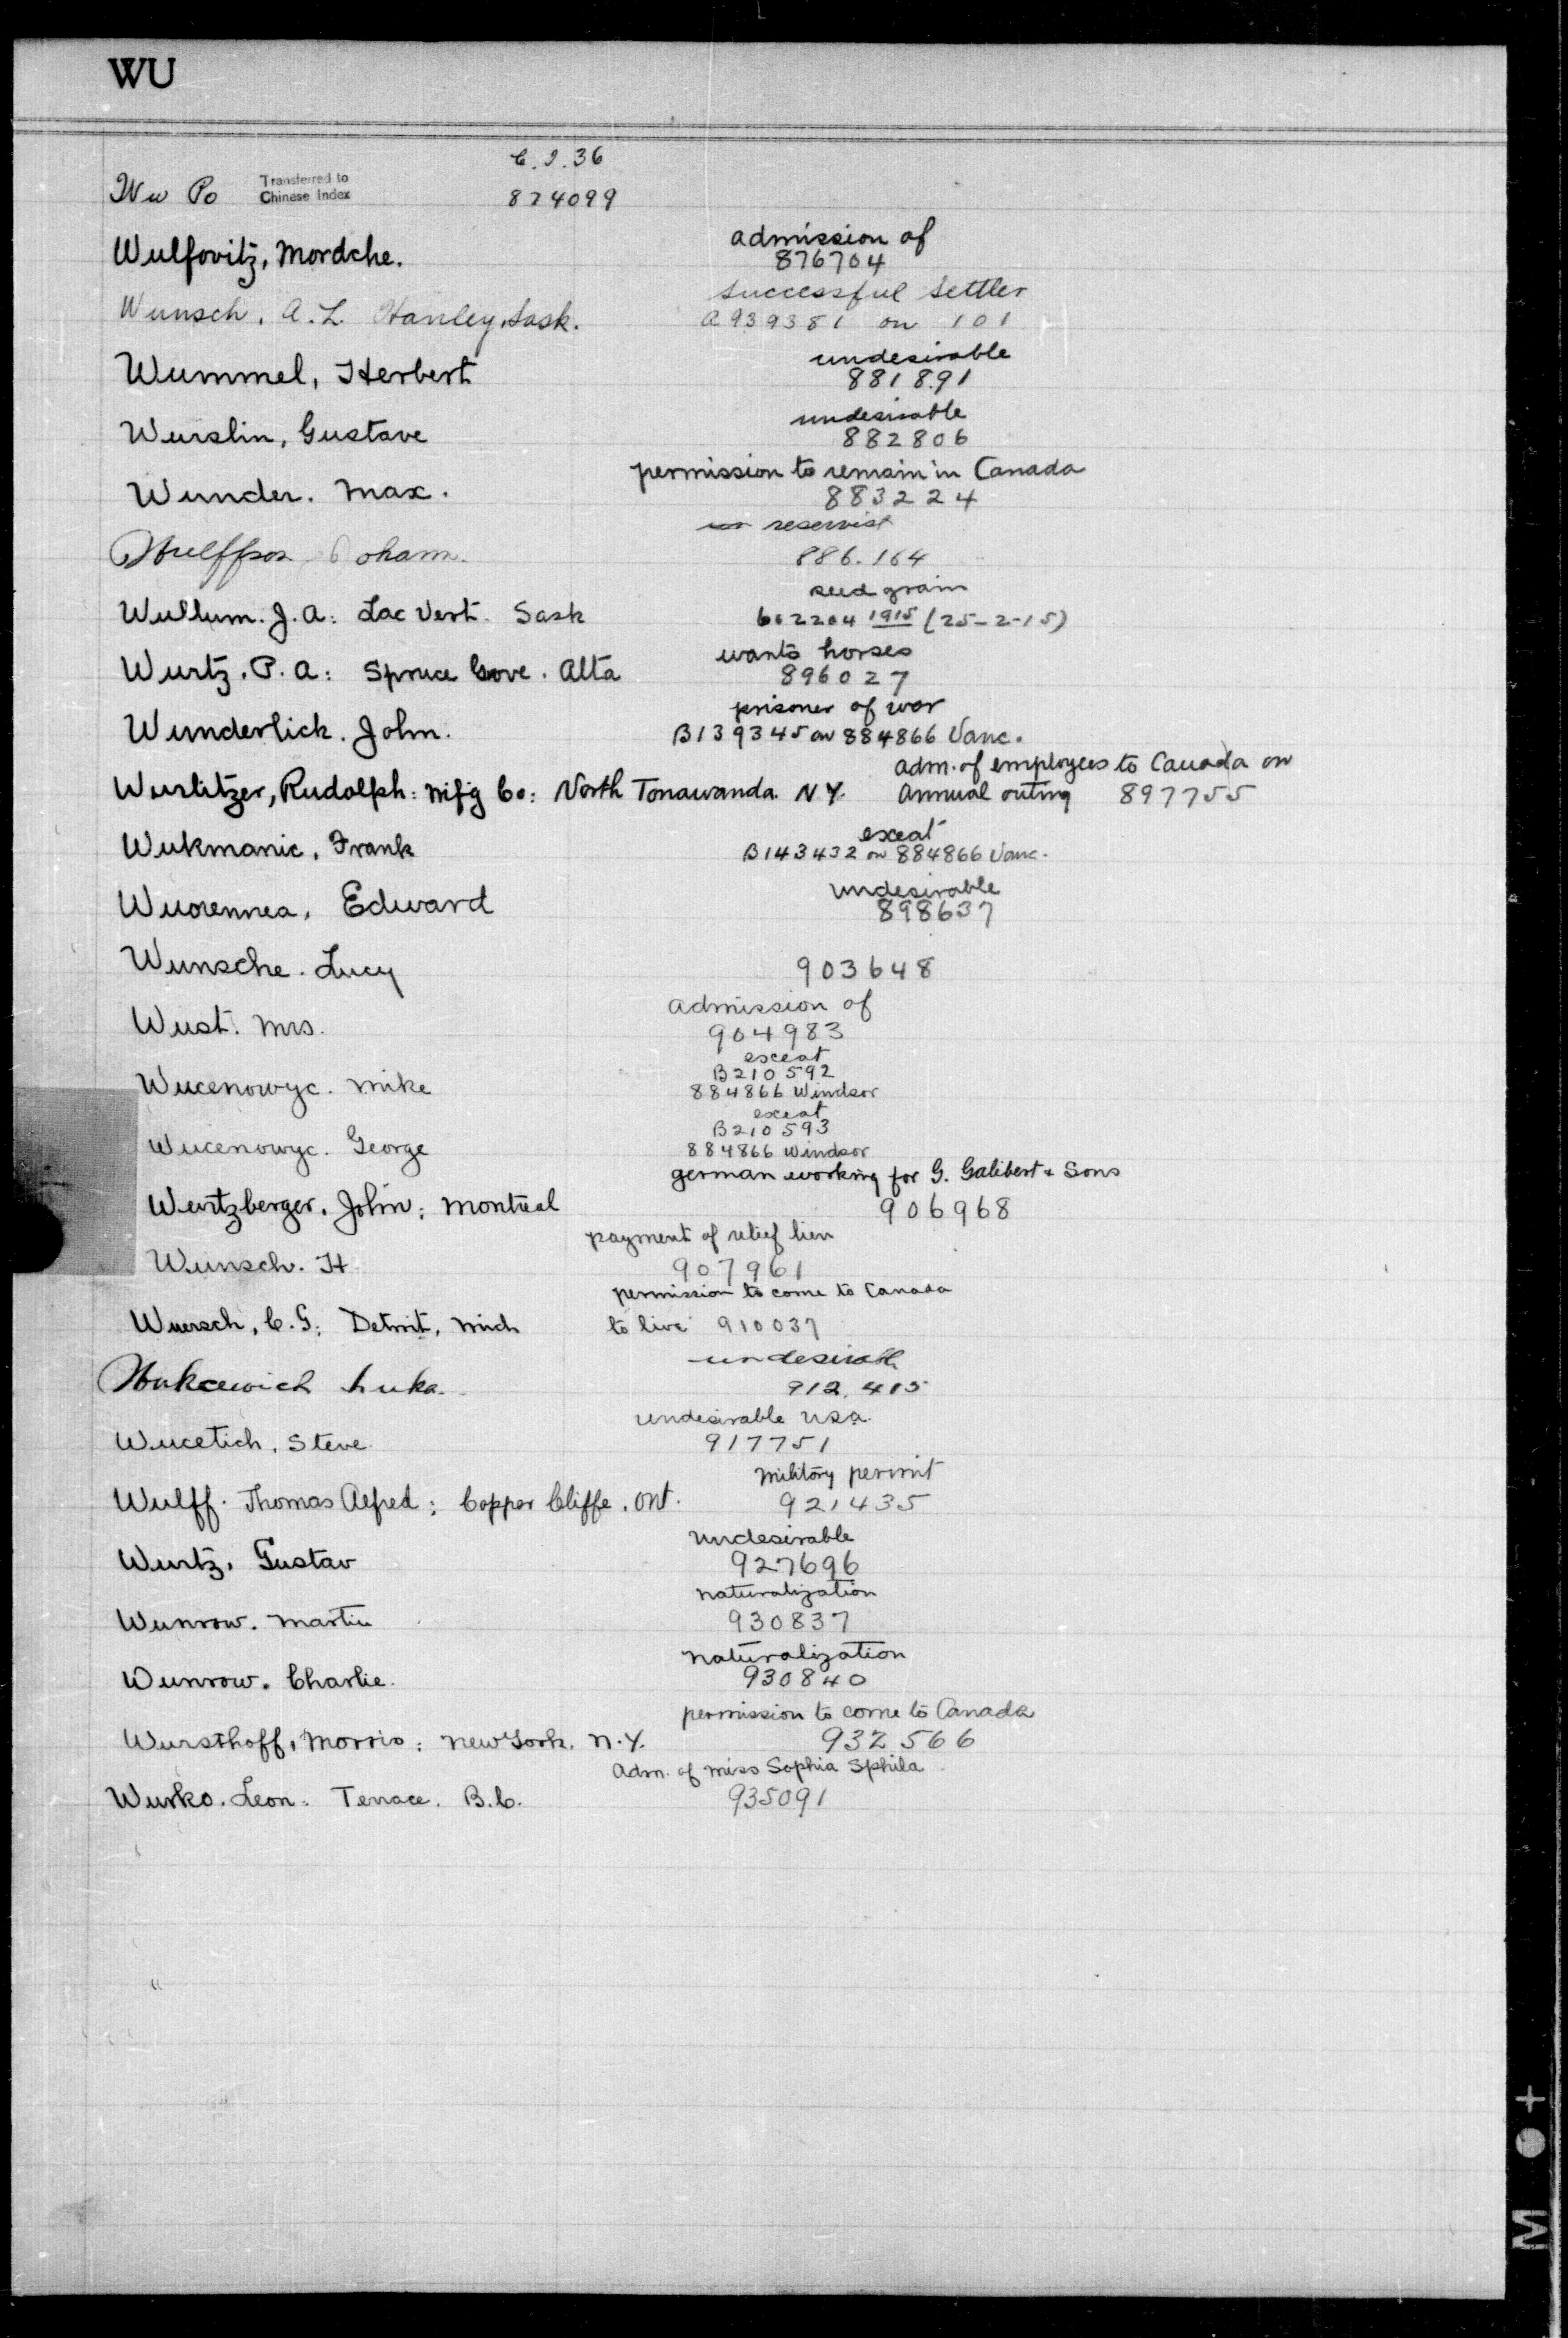 WU
C.I.36
Wu Po Transferred to Chinese Index 874099
admission of
Wulfovitz, Mordche. 876704
successful settler
Wunsch, A.L. Hanley, Sask. A939381 on 101
undesirable
Wummel, Herbert 881891
undesirable
Wurslin, Gustave 882806
permission to remain in Canada
Wunder. Max. 883224
reservist
Wulffson 886.164
seed grain
Wullum. J. A: Lac Vert. Sask 602204 1915 (25-2-15)
wants horses
Wurtz. P. A: Spruce Gove. Alta 896027
prisoner of war
Wunderlick. John. B139345 on 884866 Vanc.
adm. of employees to Canada on
Wurlitzer, Rudolph: mf'g Co: North Tonawanda N Y. annual outing 897755
exeat
Wukmanic, Frank B143432 on 884866 Vanc.
undesirable
Wuorennea, Edward 898637
Wunsche. Lucy 903648
admission of
Wust. Mrs. 904983
exeat
B210592
Wucenowyc. Mike 884866 Windsor
exeat
B210593
Wucenowyc. George 884866 Windsor
german working for G. Galibert & Sons
Wurtzberger. John; Montreal 906968
payment of relief lien
Wunsch. H 907961
permission to come to Canada
Wuersch, C. G; Detroit, Mich to live 910037
undesirabl
Wukcewich Luka. 912.415
undesirable USA.
Wucetich, Steve 917751
military permit
Wulff. Thomas Alfred; Copper Cliffe. Ont. 921435
undesirable
Wurtz, Gustav 927696
naturalization
Wunrow. Martin 930837
naturalization
Wunrow. Charlie. 930840
permission to come to Canada
Wursthoff, Morris; New York. N.Y. 932566
Adm. of Miss Sophia Sphila
Wurko. Leon. Terrace. B.C. 935091
M